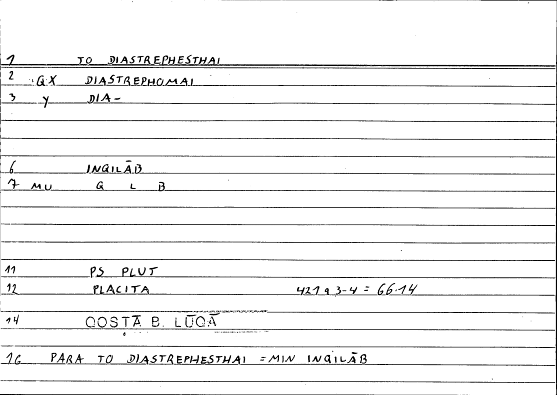 1 TO DIASTREPHESTHAI
2 QX DIASTREPHOMAI
3 Y DIA-
6 INQILĀB
7 MU Q L B
11 PS PLUT
12 PLACITA 421 a 3-4 = 66.14
14 QOSṬĀ B. LŪQĀ
16 PARA TO DIASTREPHESTHAI = MIN INQILĀB